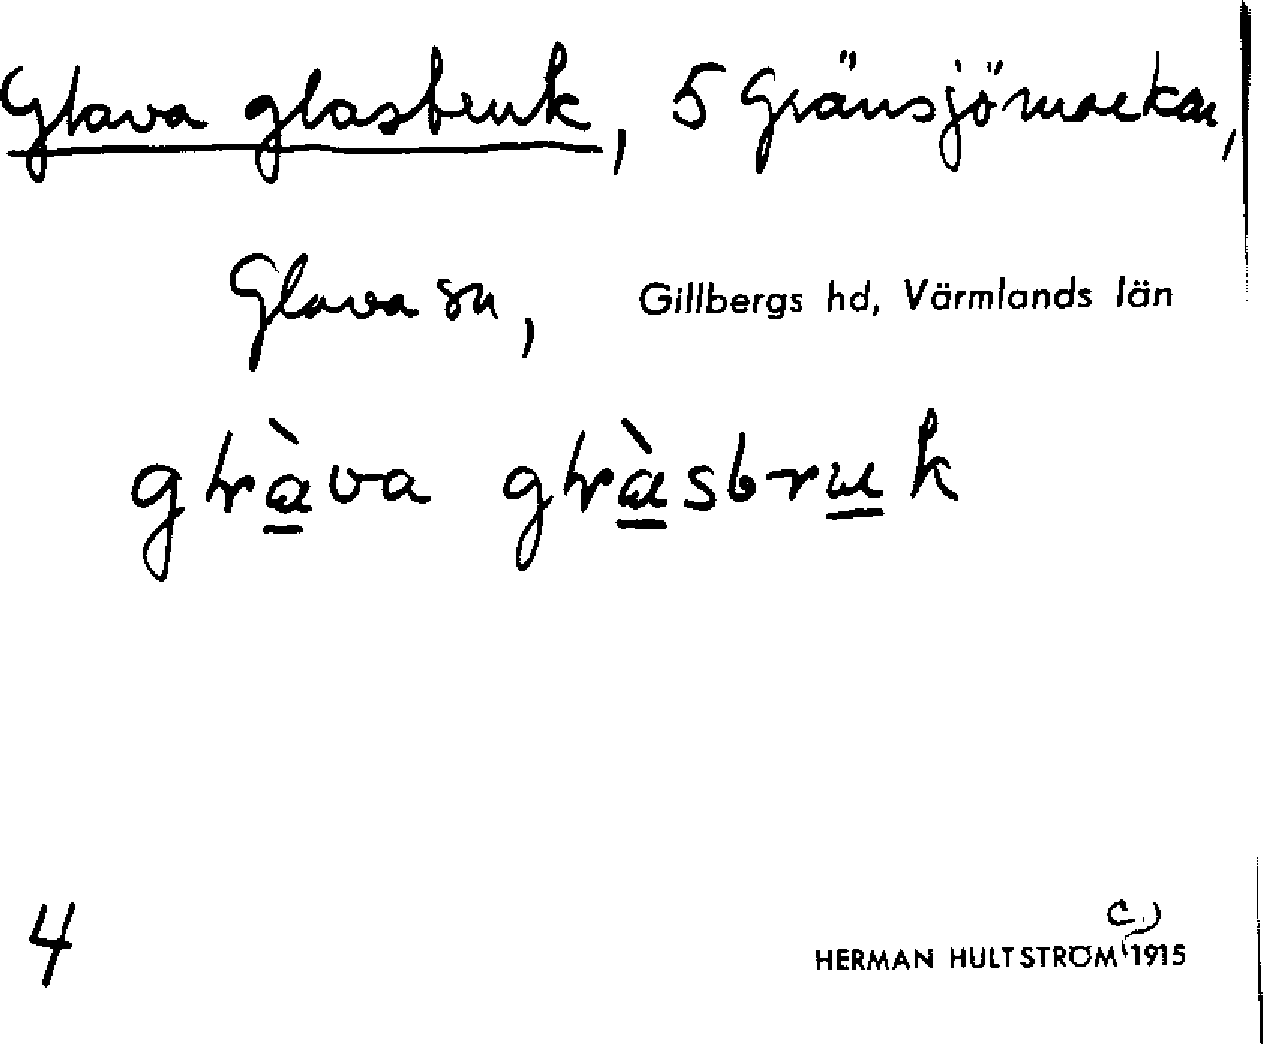 Glava glasbruk, 5 Gränsjömarken,
Glava sn, Gillbergs hd, Värmlands län
4
HERMAN HULTSTRÖM (c) 1915